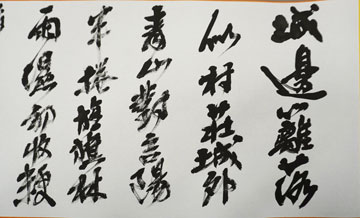 城邊籬落
似村莊城外
青山對陽
半捲旌旗林
雨濕初收鼓